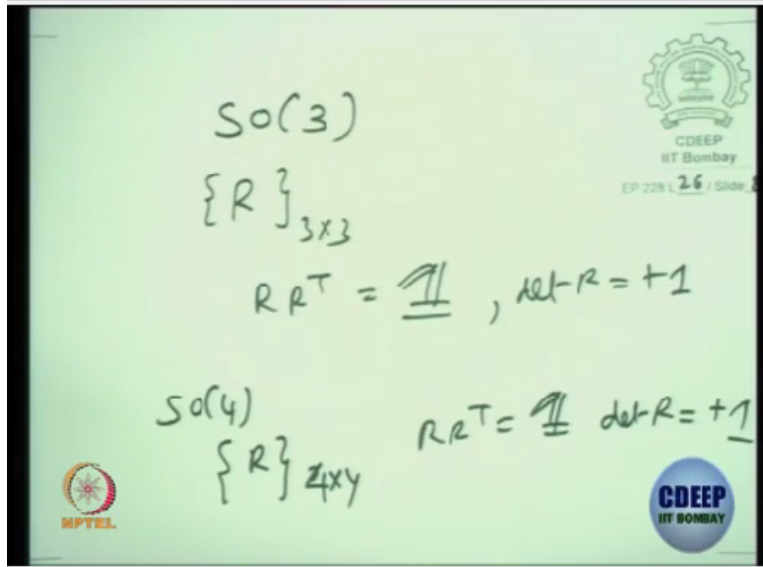 SO(3)
CDEEP
IIT Bombay
EP 228 L 26 / Slide
{R}3×3
RRᵀ = 𝟙, det R = +1
SO(4)
{R}4×4
RRᵀ = 𝟙 det R = +1
NPTEL
CDEEP
IIT BOMBAY